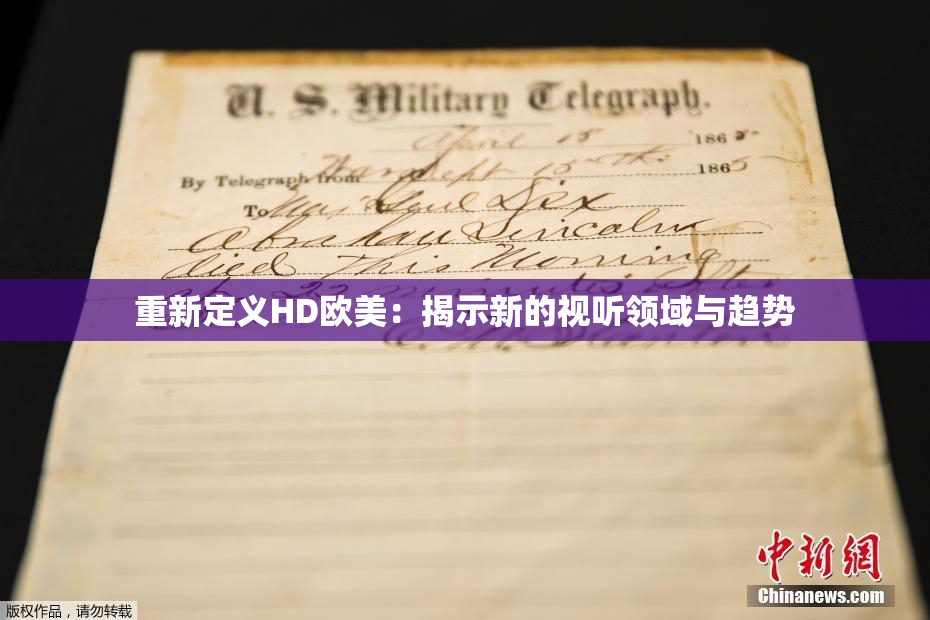 U. S. Military Telegraph.
April 15 1865
By Telegraph from War Dept 15th 1865
To Maj Genl Dix
Abraham Lincoln
died This Morning
at 22 minutes after
重新定义HD欧美：揭示新的视听领域与趋势
E. M. Stanton
中新网
Chinanews.com
版权作品，请勿转载